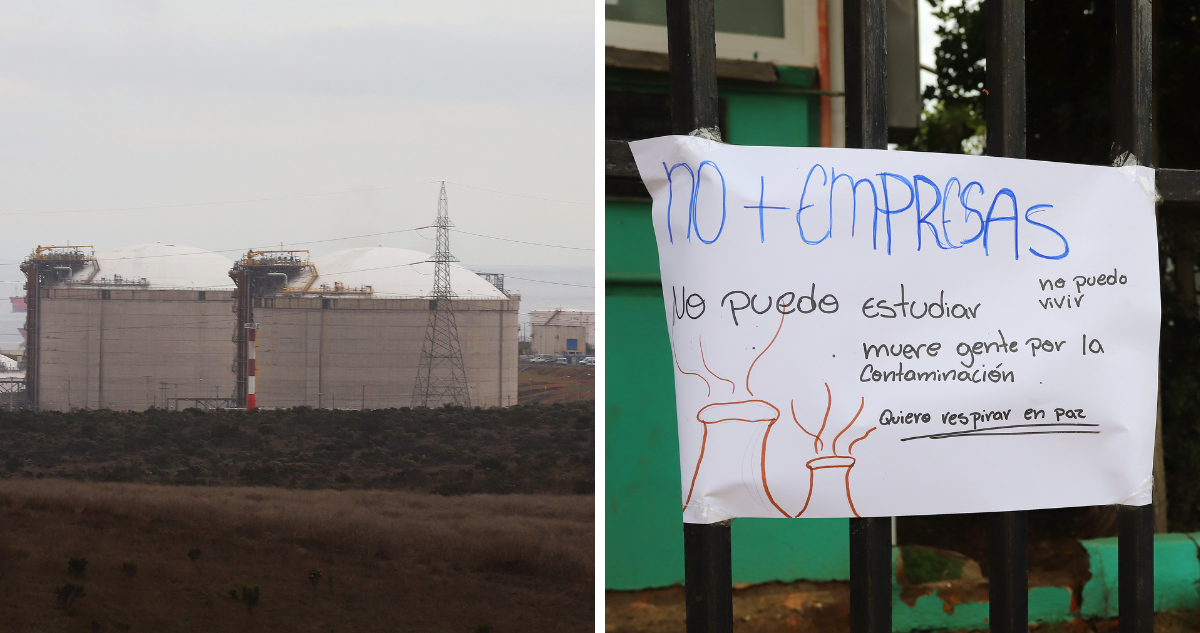 NO + EMPRESAS
No puedo estudiar
no puedo
vivir
muere gente por la
contaminación
Quiero respirar en paz